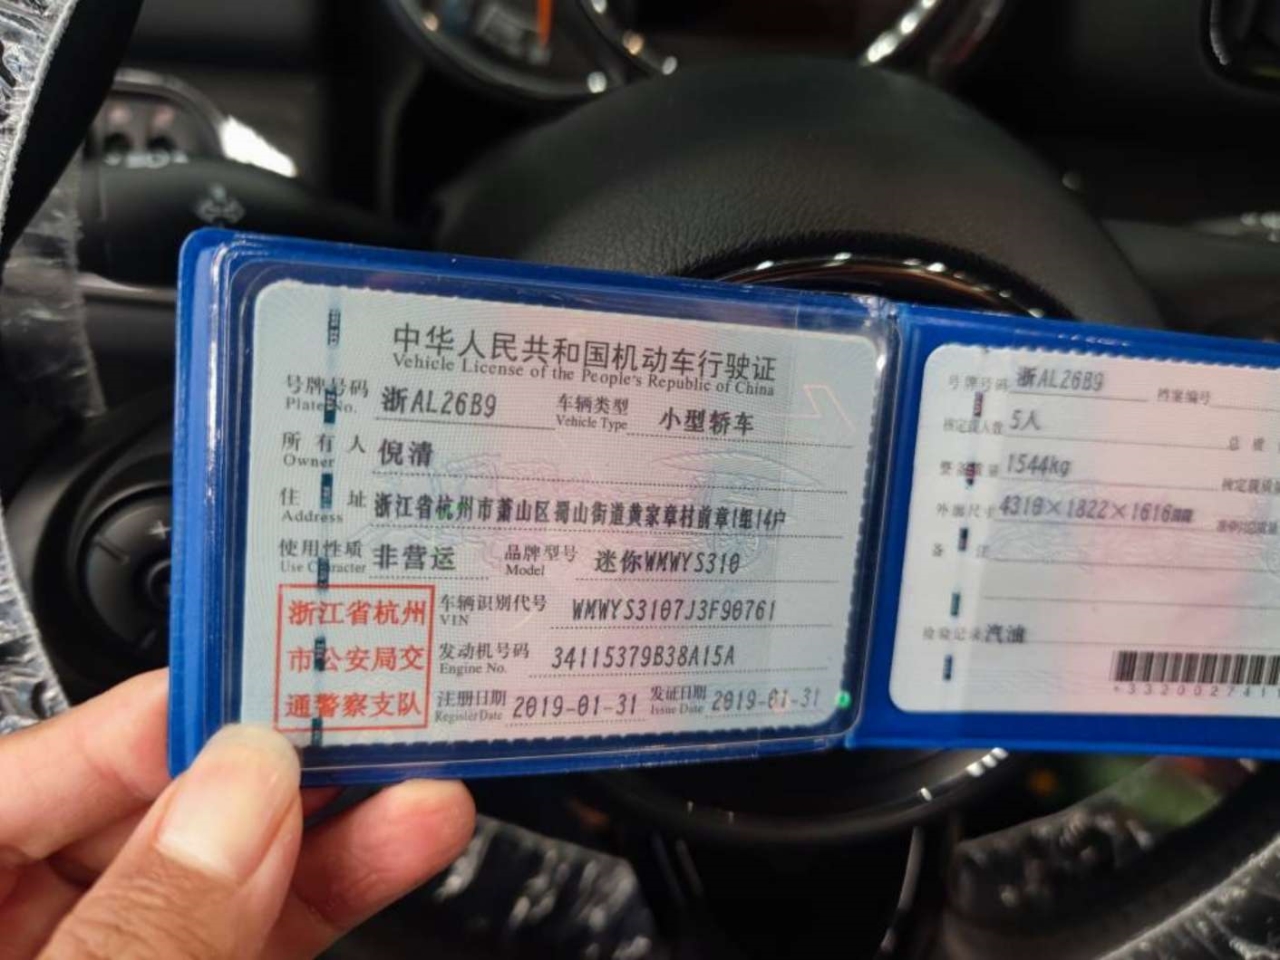 中华人民共和国机动车行驶证
Vehicle License of the People's Republic of China
号牌号码 浙AL26B9 车辆类型 小型轿车
Plate No. Vehicle Type
所有人 倪清
Owner
住址 浙江省杭州市萧山区蜀山街道黄家章村前章1组14户
Address
使用性质 非营运 品牌型号 迷你WMWYS310
Use Character Model
浙江省杭州
市公安局交
通警察支队
车辆识别代号 WMWYS3107J3F90761
VIN
发动机号码 34115379B38A15A
Engine No.
注册日期 2019-01-31 发证日期 2019-01-31
Register Date Issue Date
号牌号码 浙AL26B9 档案编号
核定载人数 5人
整备质量 1544kg
外廓尺寸 4310×1822×1616mm
备注
检验记录 汽油